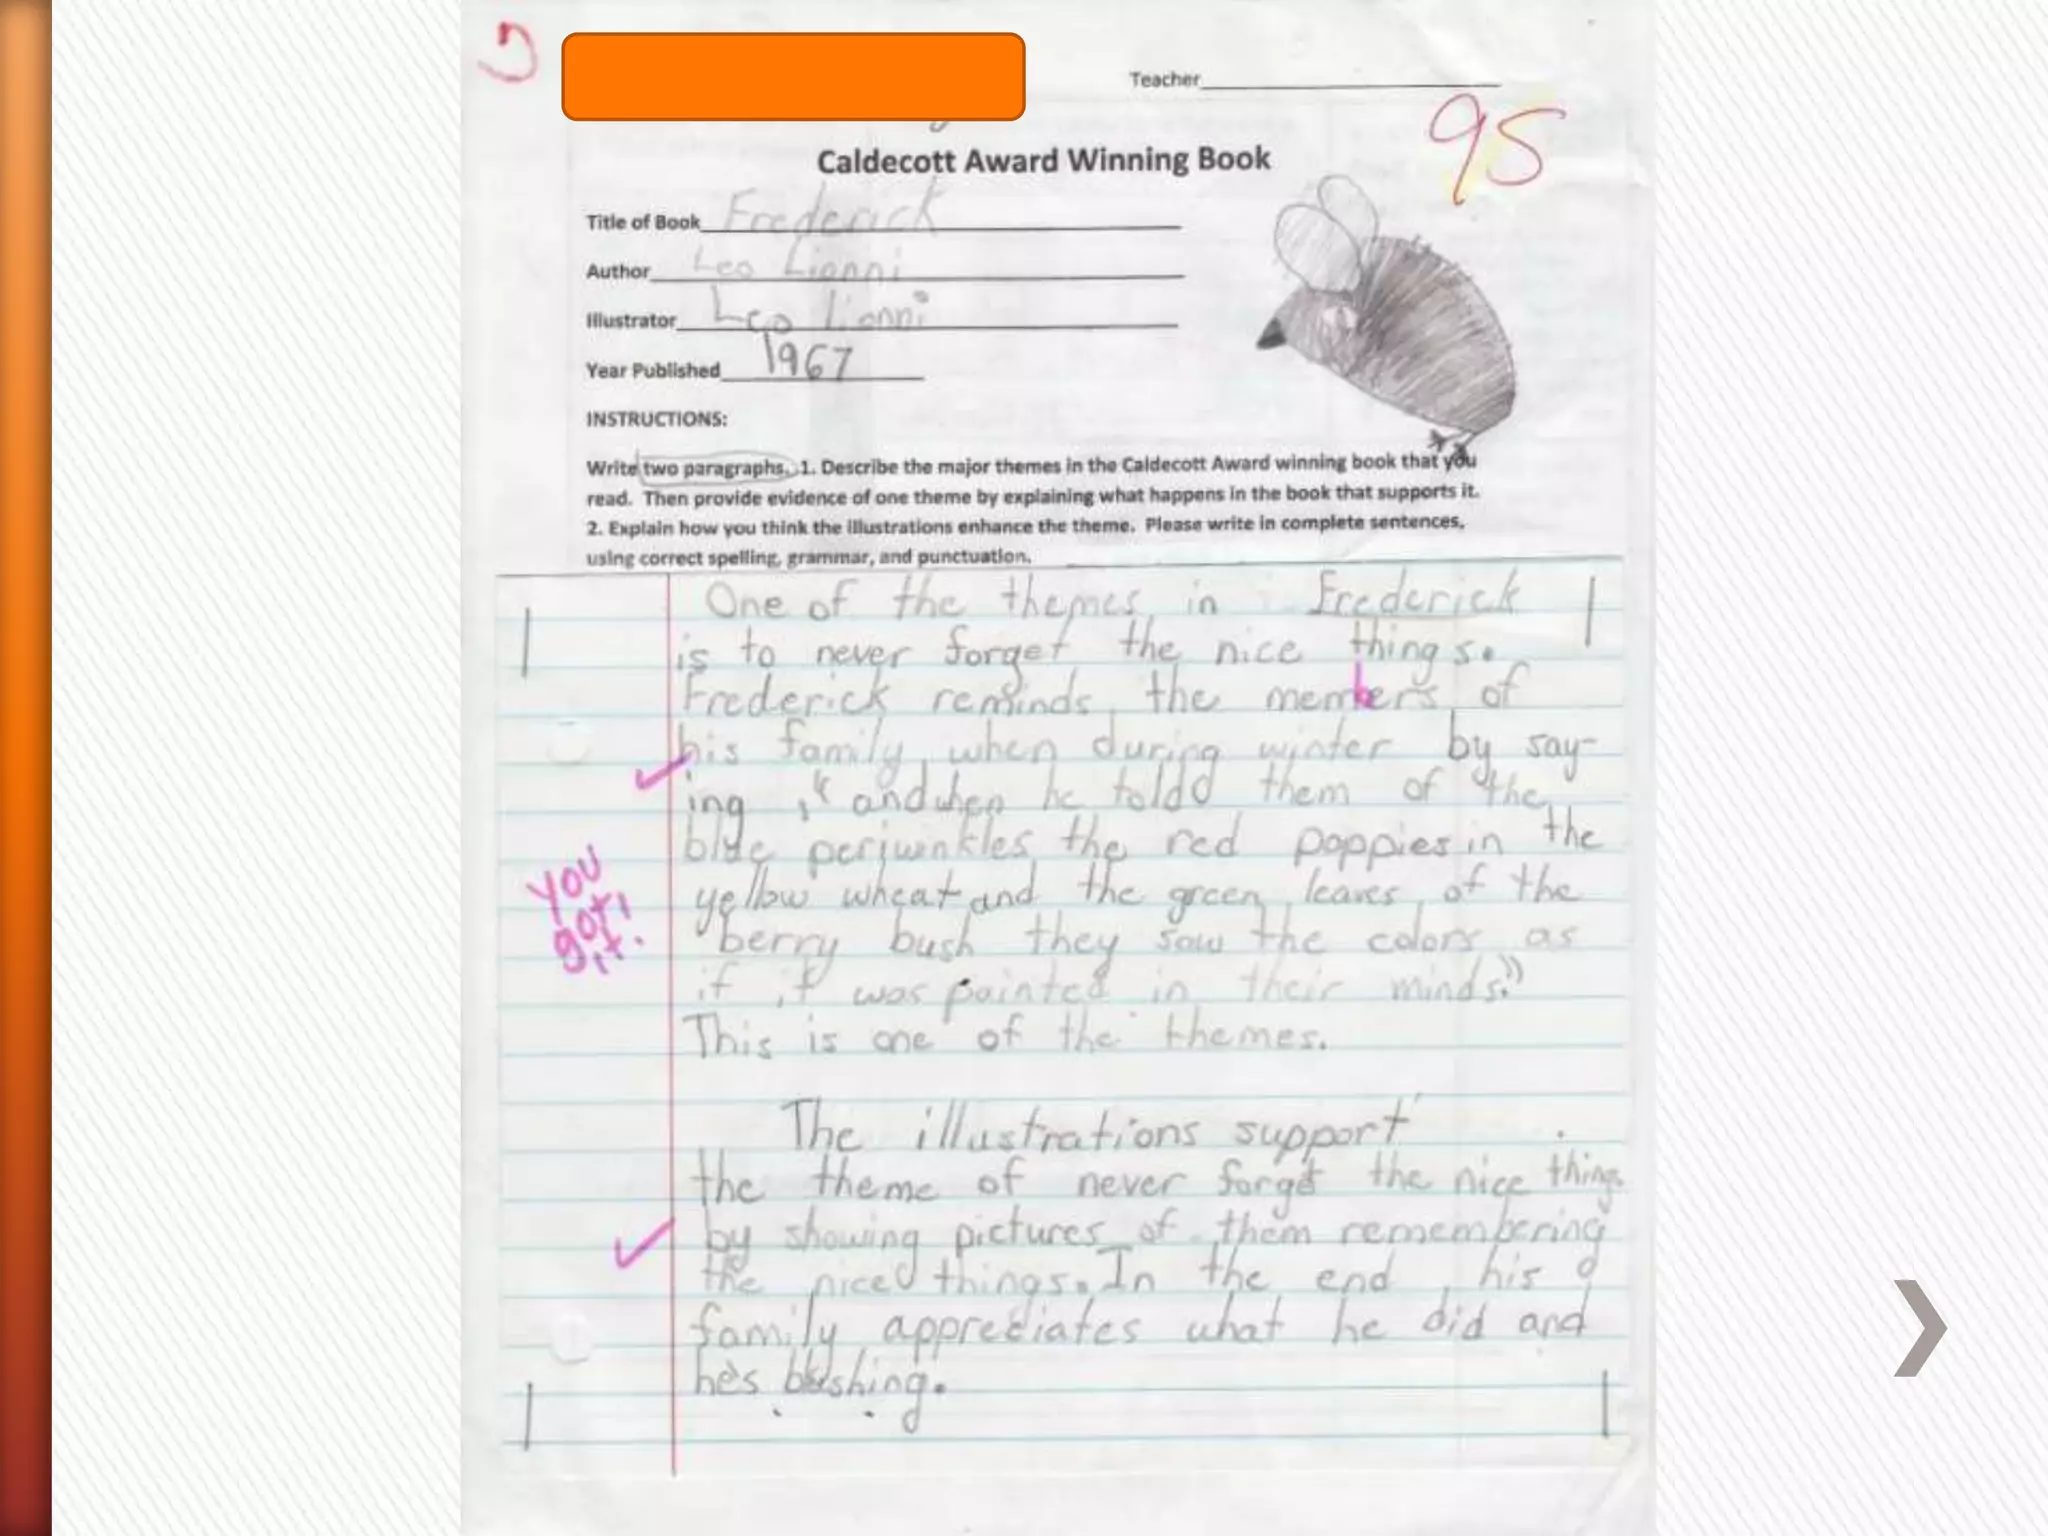 Teacher
95
Caldecott Award Winning Book
Title of Book Frederick
Author Leo Lionni
Illustrator Leo Lionni
Year Published 1967
INSTRUCTIONS:
Write two paragraphs. 1. Describe the major themes in the Caldecott Award winning book that you
read. Then provide evidence of one theme by explaining what happens in the book that supports it.
2. Explain how you think the illustrations enhance the theme. Please write in complete sentences,
using correct spelling, grammar, and punctuation.
One of the themes in Frederick
is to never forget the nice things.
Frederick reminds the members of
his family when during winter by say-
ing, "and when he told them of the
blue periwinkles the red poppies in the
yellow wheat and the green leaves of the
berry bush they saw the colors as
if it was painted in their minds."
This is one of the themes.
you
got
it!
The illustrations support
the theme of never forget the nice things
by showing pictures of them remembering
the nice things. In the end, his
family appreciates what he did and
he's blushing.